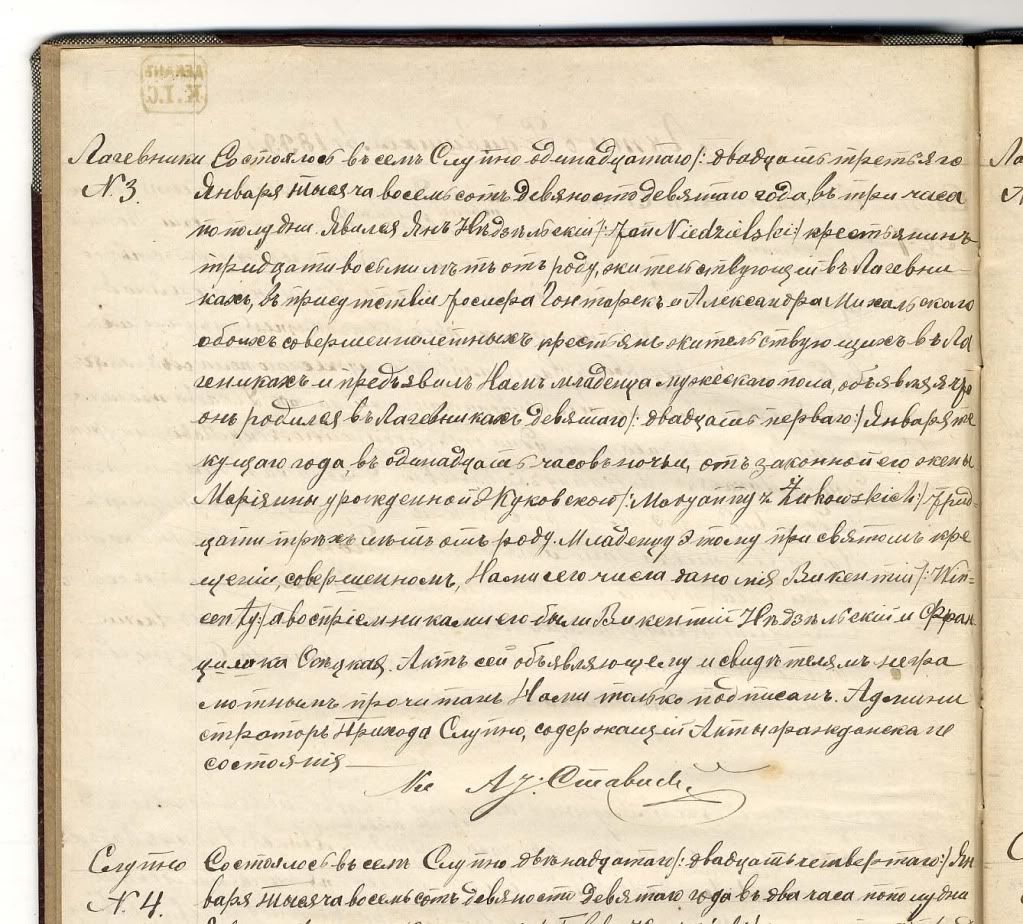 Лагевники
№ 3.
Состоялось въ семъ Слупно одинадцатаго /: двадцать третьяго
Января тысяча восемьсотъ девяностодевятаго года, въ три часа
пополудни. Явился Янъ Нѣдзѣльскій /: Jan Niedzielski :/ крестьянинъ
тридцативосьми лѣтъ отъ роду, жительствующій въ Лагевни-
кахъ, въ присутствіи Іосифа Гонтарекъ и Александра Михальскаго
обоихъ совершеннолѣтныхъ крестьянъ жительствующихъ въ Ла
геникахъ и предъявилъ Намъ младенца мужескаго пола, объявляя что
онъ родился въ Лагевникахъ девятаго /: двадцать перваго :/ Января те
кущаго года, въ одинадцать часовъ ночьи, отъ законной его жены
Маріянны урожденной Жуковскою /: Maryanny z Żukowskich :/ трид-
цати трехъ лѣтъ отъ роду. Младенцу этому при святомъ кре
щеніи, совершенномъ, Нами сего числа дано имя Викентій /: Win-
centy :/ а воспріемниками его были Викентій Нѣдзѣльскій и Фран
цишка. Актъ сей объявляющему и свидѣтелямъ негра
мотнымъ прочитанъ Нами только подписанъ. Админи
страторъ Прихода Слупно, содержащій Акты гражданскаго
состоянія
Кс
Слупно
№ 4.
Состоялось въ семъ Слупно двѣнадцатаго /: двадцать четвертаго :/ Ян
варя тысяча восемьсотъ девяносто девятаго года въ два часа пополудни